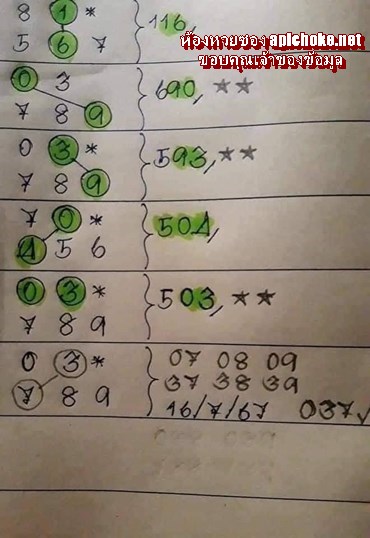 8 1 *
5 6 7
116,
ห้องหวยซอง apichoke.net
ขอบคุณเจ้าของข้อมูล
0 3
7 8 9
690, ☆☆
0 3 *
7 8 9
593, ☆☆
7 0 *
4 5 6
504,
0 3 *
7 8 9
503, ☆☆
0 3 *
7 8 9
07 08 09
37 38 39
16/7/67 037✓